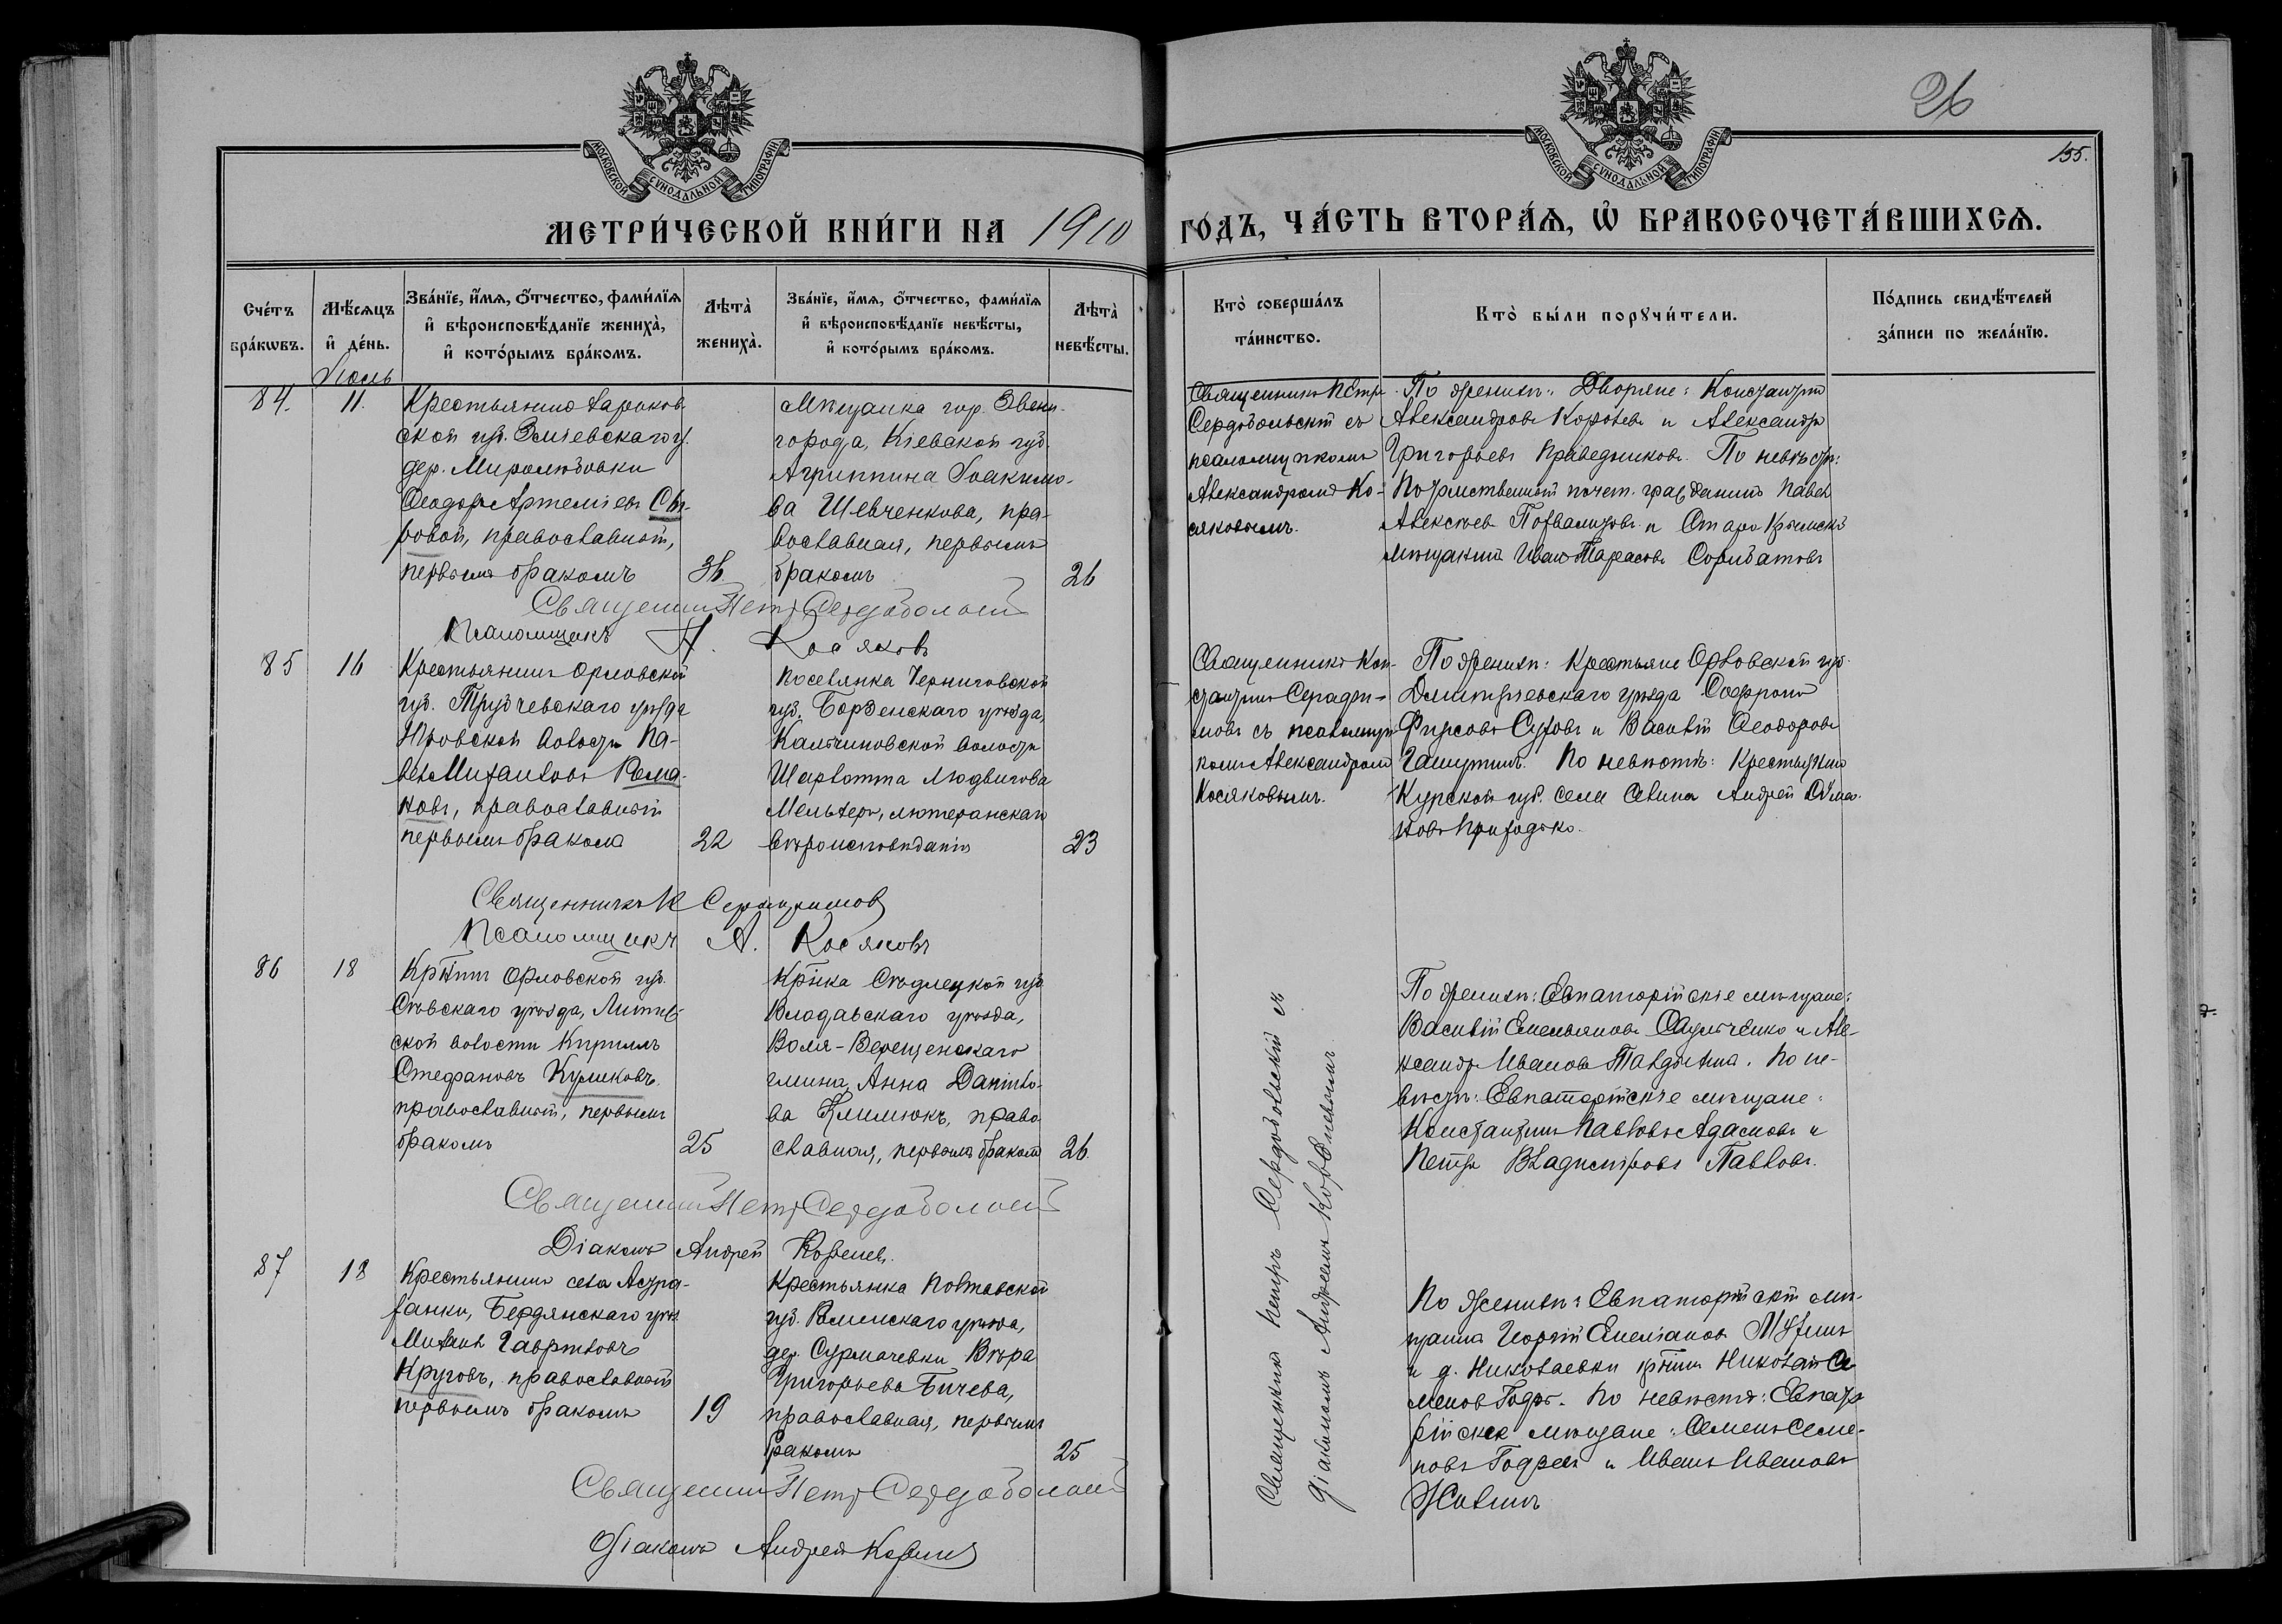 26
155.
МОСКОВСКОЙ СУНОДАЛЬНОЙ ТИПОГРАФІИ
МОСКОВСКОЙ СУНОДАЛЬНОЙ ТИПОГРАФІИ
МЕТРИ́ЧЕСКОЙ КНИ́ГИ НА 1910
ГО́ДЪ, ЧА́СТЬ ВТОРА́Ѧ, Ѽ БРАКОСОЧЕТА́ВШИХСѦ.
Сче́тъ бра́кѡвъ.
Мѣ́сѧцъ и҆ де́нь.
Зва́нїе, и҆́мѧ, ѻ҆́тчество, фами́лїѧ и҆ вѣроисповѣ́данїе жениха̀, и҆ кото́рымъ бра́комъ.
Лѣта̀ жениха̀.
Зва́нїе, и҆́мѧ, ѻ҆́тчество, фами́лїѧ и҆ вѣроисповѣ́данїе невѣ́сты, и҆ кото́рымъ бра́комъ.
Лѣта̀ невѣ́сты.
Кто̀ соверша́лъ та́инство.
Кто̀ бы́ли порꙋчи́тели.
По́дпись свидѣ́телей за́писи по жела́нїю.
Іюль
84.
11.
Крестьянинъ Харьков-
ской губ. Зміевскаго у.
дер. Миролюбовки
Ѳеодоръ Артеміевъ
ровой, православный,
первымъ бракомъ
36
Мѣщанка гор. Звени-
города, Кіевской губ.
Агриппина Іоакимо-
ва Шевченкова, пра-
вославная, первымъ
бракомъ
26
Священникъ Петръ
Сердобольскій съ
псаломщикомъ
Александромъ Ко-
сяковымъ.
По женихѣ: Дворяне: Константинъ
Александровъ и Александръ
Григорьевъ Праведниковъ. По невѣстѣ:
Потомственный почет. гражданинъ Павелъ
Алексѣевъ и Старо-Крымскій
мѣщанинъ Иванъ Тарасовъ
Священникъ Петръ Сердобольскій
Псаломщикъ А. Косяковъ
85
16
Крестьянинъ Орловской
губ. Трубчевскаго уѣзда
волости Па-
велъ Михаиловъ Рома-
новъ, православный
первымъ бракомъ
22
Поселянка Черниговской
губ. Борзенскаго уѣзда,
Кальчиновской волости
Шарлотта Людвигова
Мельхеръ, лютеранскаго
вѣроисповѣданія
23
Священникъ Кон-
стантинъ Серафи-
мовъ съ псаломщи-
комъ Александромъ
Косяковымъ.
По женихѣ: Крестьяне Орловской губ.
Дмитріевскаго уѣзда Софроній
Фирсовъ и Василій Ѳеодоровъ
По невѣстѣ: Крестьянинъ
Курской губ. села Андрей
Приходько.
Священникъ К Серафимовъ
Псаломщикъ А. Косяковъ
86
18
Кр-нинъ Орловской губ.
Сѣвскаго уѣзда,
ской волости Кириллъ
Стефановъ Куликовъ,
православный, первымъ
бракомъ
25
Кр-нка Сѣдлецкой губ
Влодавскаго уѣзда,
Воля-Верещенскаго
гмина, Анна Данило-
ва Климюкъ, право-
славная, первымъ бракомъ
26.
Священникъ Петръ Сердобольскій съ
діакономъ Андреемъ
По женихѣ: Евпаторійскіе мѣщане:
Василій Емельяновъ и Але-
ксандръ Ивановъ По не-
вѣстѣ: Евпаторійскіе мѣщане:
Константинъ Павловъ Адамовъ и
Петръ Владиміровъ Павловъ.
Священникъ Петръ Сердобольскій
Діаконъ Андрей
87
18
Крестьянинъ села Астра-
ханки, Бердянскаго уѣз.
Михаилъ Гавріиловъ
Круговъ, православный
первымъ бракомъ
19
Крестьянка Полтавской
губ. Роменскаго уѣзда,
дер. Сурмачевки Вѣра
Григорьева Бичева,
православная, первымъ
бракомъ
25
По женихѣ: Евпаторійскій мѣ-
щанинъ Георгій Емеліановъ
и д. Николаевки кр-нинъ Николай Се-
меновъ По невѣстѣ: Евпато-
рійскіе мѣщане: Семенъ Семе-
новъ и Иванъ Ивановъ
Священникъ Петръ Сердобольскій
Діаконъ Андрей